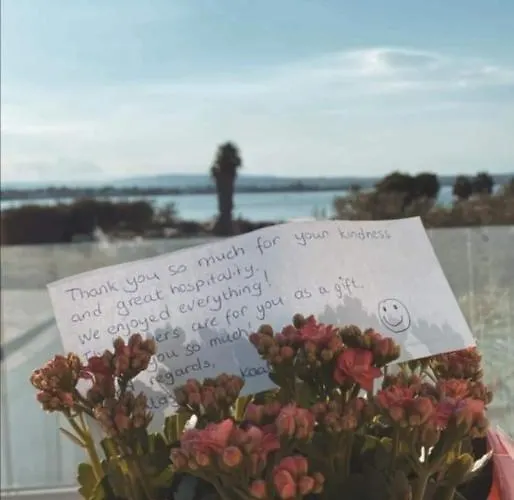 Thank you so much for your kindness
and great hospitality.
We enjoyed everything!
are for you as a gift.
you so much!
regards,